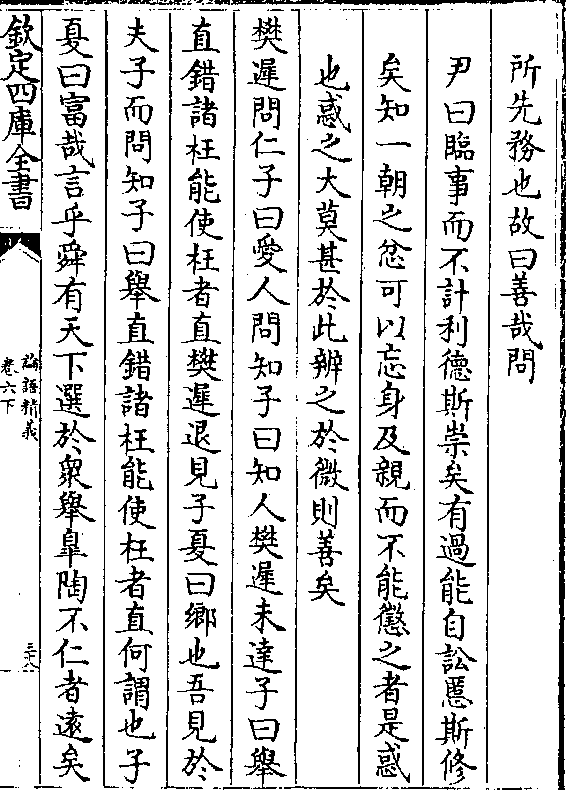 所先務也故曰善哉問
尹曰臨事而不計利德斯崇矣有過能自訟慝斯修
矣知一朝之忿可以忘身及親而不能懲之者是惑
也惑之大莫甚於此辨之於微則善矣
樊遲問仁子曰愛人問知子曰知人樊遲未達子曰舉
直錯諸枉能使枉者直樊遲退見子夏曰鄉也吾見於
夫子而問知子曰舉直錯諸枉能使枉者直何謂也子
夏曰富哉言乎舜有天下選於衆舉臯陶不仁者遠矣
欽定四庫全書
論語精義
卷六下